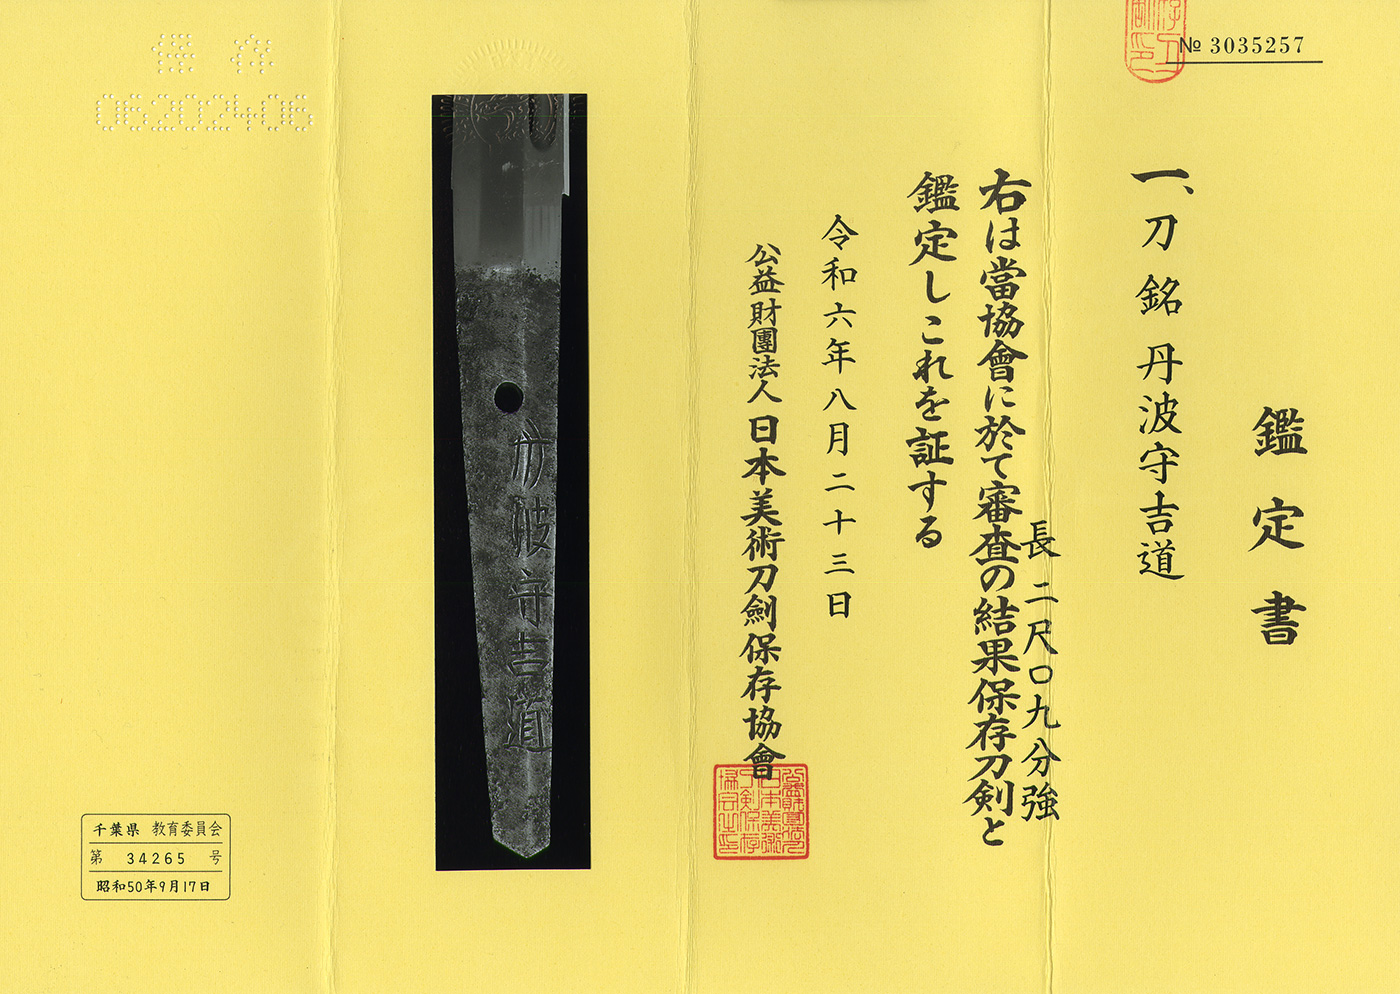 № 3035257
鑑定書
一、刀 銘 丹波守吉道
長 二尺〇九分強
右は當協會に於て審査の結果保存刀剣と
鑑定しこれを証する
令和六年八月二十三日
公益財團法人 日本美術刀劍保存協會
丹波守吉道
保存
06202406
千葉県 教育委員会
第 34265 号
昭和50年9月17日